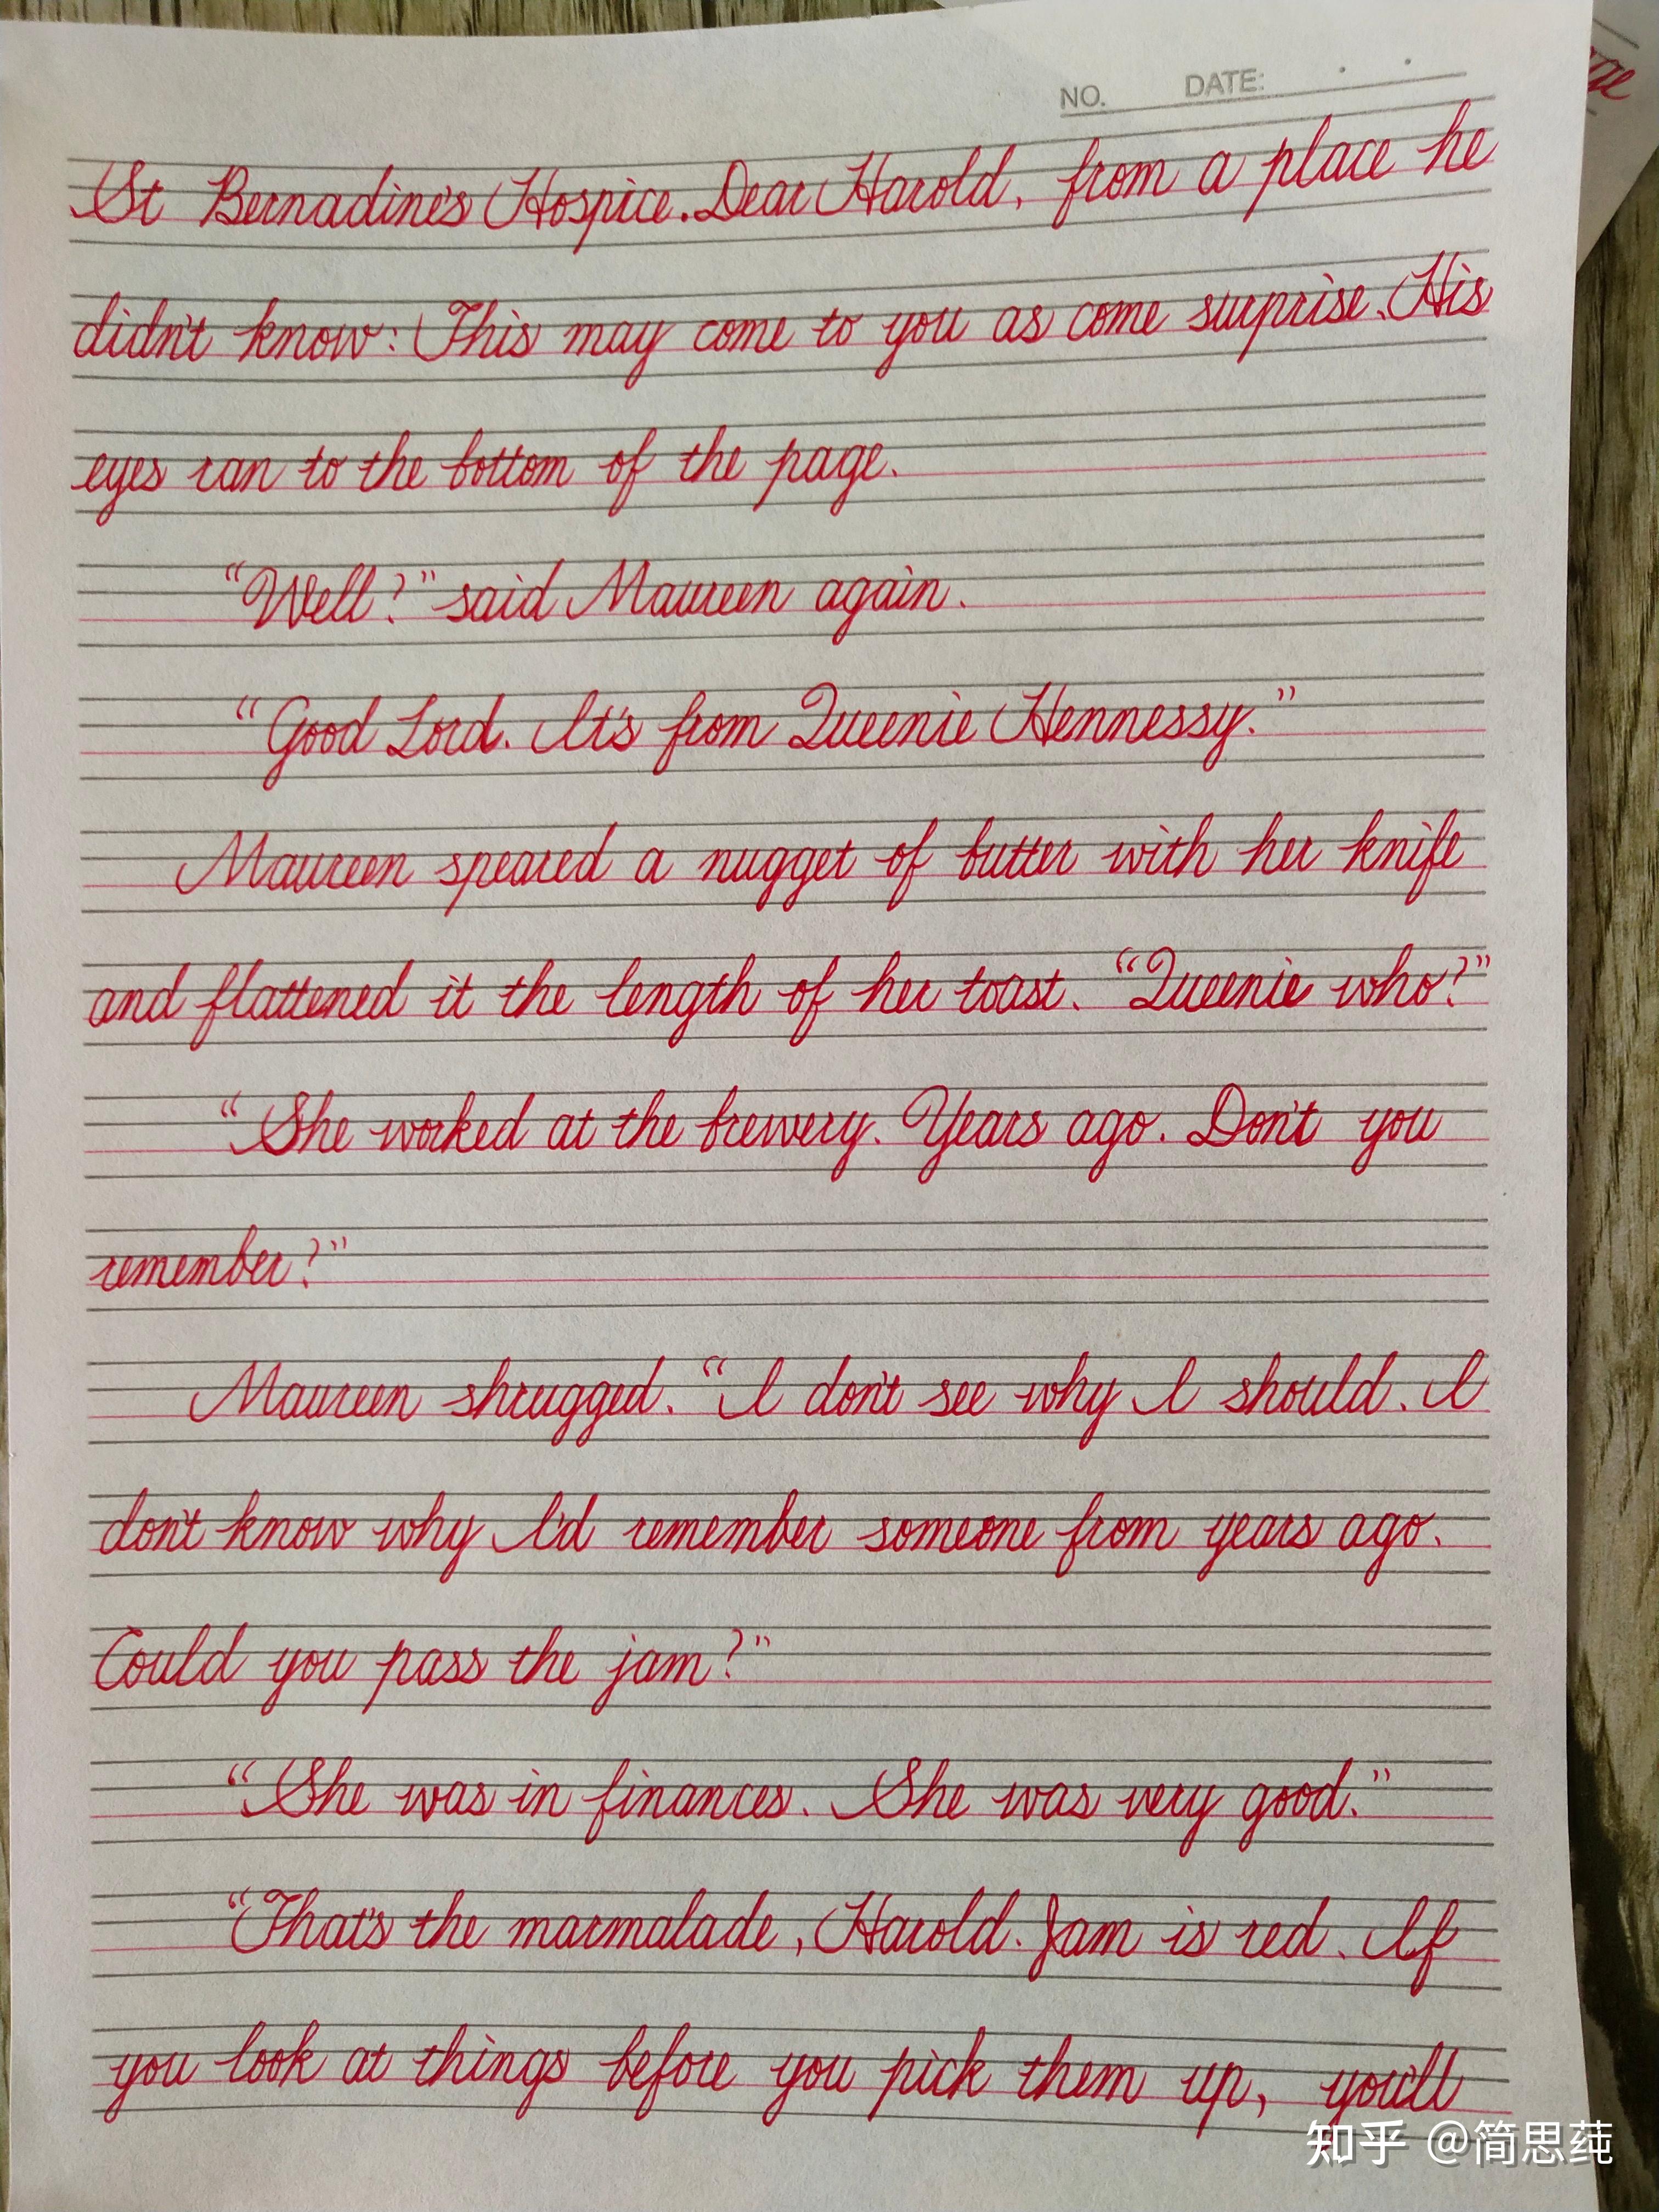 NO. DATE:
St Bernadine's Hospice. Dear Harold, from a place he
didn't know: This may come to you as come surprise. His
eyes ran to the bottom of the page.
“Well?” said Maureen again.
“Good Lord. It's from Queenie Hennessy.”
Maureen speared a nugget of butter with her knife
and flattened it the length of her toast. “Queenie who?”
“She worked at the brewery. Years ago. Don't you
remember?”
Maureen shrugged. “I don't see why I should. I
don't know why I'd remember someone from years ago.
Could you pass the jam?”
“She was in finances. She was very good.”
“That's the marmalade, Harold. Jam is red. If
you look at things before you pick them up, you'll
知乎 @简思莼